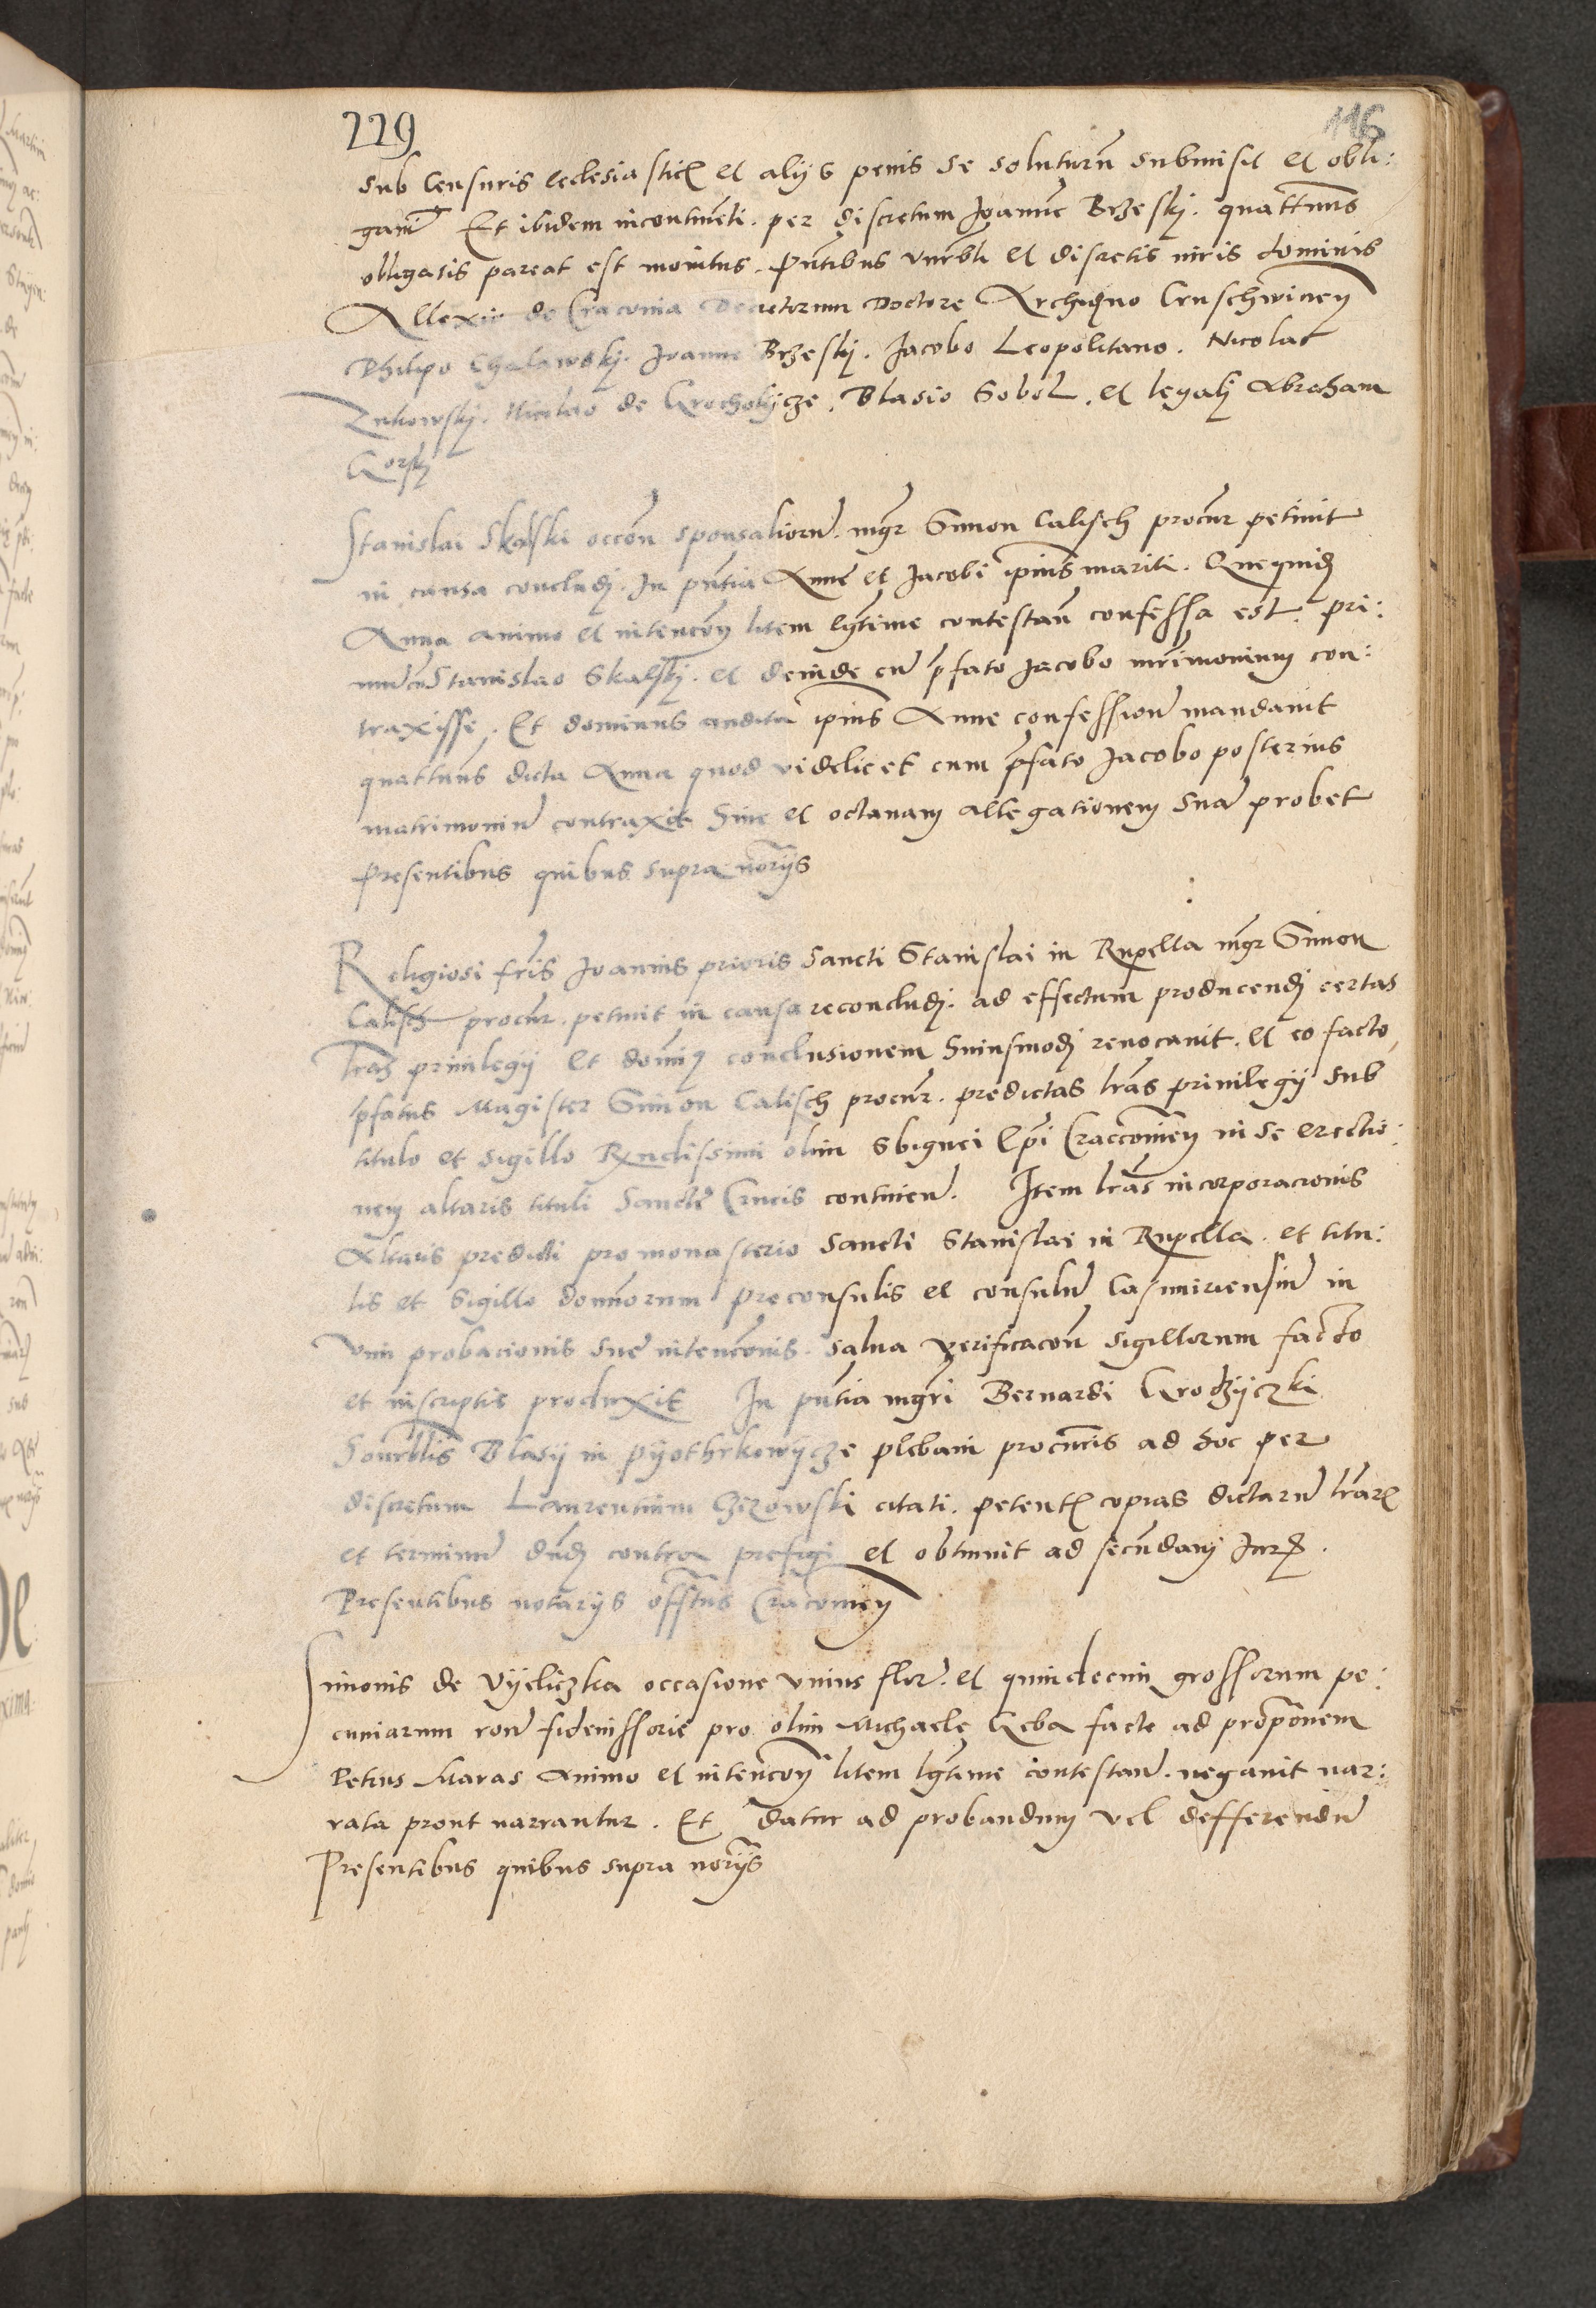 229
116
sub Censuris ecclesiastic[is] et alijs penis se soluturu̅ submisit et obli:
gauit Et ibidem incontinenti. per discretum Joanne̅ Brzeskj. quattinus
obligatis pareat est monitus. pn̅tibus vn̅rbli et discretis viris dominis
Allexio de Cracouia Decretorum Doctore Archidno Cruschwicien̅
Philipo Chalawskj. Joanne Brzeskj. Jacobo Leopolitano. Nicolao
Zukowskj. Nicolao de Grocholycze. Blasio Sobol. et legalj Abraham
Gorskj
Stanislai Skalski occōn sponsalioru̅. mgr̅ Simon Calisch procur̅ petiuit
in causa concludj. In pn̅tia Anne et Jacobi ip̅ius mariti. Quequid[em]
Anna animo et intencōn litem lg̅time contestan̅ confessa est. pri:
mu̅ cu̅ Stanislao Skalskj. et deinde cu̅ p̅fato Jacobo mr̅imonium con:
traxisse. Et dominus audita ip̅ius Anne confessione̅ mandauit
quattinus dicta Anna quod videlicet cum p̅fato Jacobo posterius
matrimoniu̅ contraxit hinc et octauam allegationem sua̅ probet
Presentibus quibus supra nor̅ijs
Religiosi fr̅is Joannis prioris Sancti Stanislai in Rupella mgr̅ Simon
Calisch procur̅. petiuit in causa reconcludj. ad effectum producendj certas
lr̅as priuilegij et dom̅i[nus] conclusionem huiusmodj reuocauit. et eo facto
p̅fatus Magister Simon Calisch procur̅. predictas lr̅as priuilegij sub
titulo et sigillo R̅ndissimi olim Sbignei Ep̅i Craccouien̅ in se erectio:
nem altaris tituli Sancte Crucis continen̅. Item lr̅as incorporacionis
Altaris predicti pro monasterio Sancti Stanislai in Rupella. et titu:
lis et Sigillo dominorum preconsulis et consulu̅ Casimiriensiu̅ in
vim probacionis sue intencōnis. salua verificacōn sigillorum facto
et inscriptis produxit In pn̅tia mgr̅i Bernardi Grodzyczki
Honrbilis Blasij in Pyothrkowycze plebani procur̅is ad hoc per
discretum Laurentium Gizowski citati. petent[is] copias dictaru̅ lr̅ar[um]
et terminu̅ dn̅dj contra prefigi et obtinuit ad secundam Jur[idicam].
Presentibus notarijs off̅tus Cracouien̅
Simonis de Vyeliczka occasione vnius flor̅. et quindecim grossorum pe:
cuniarum ron̅ fideiussorie pro olim Michaele Geba facte ad propōnem
Petrus Maras animo et intencōn litem lg̅time contestan̅. negauit nar:
rata prout narrantur. Et datur ad probandum vel defferendu̅
Presentibus quibus supra nor̅ijs